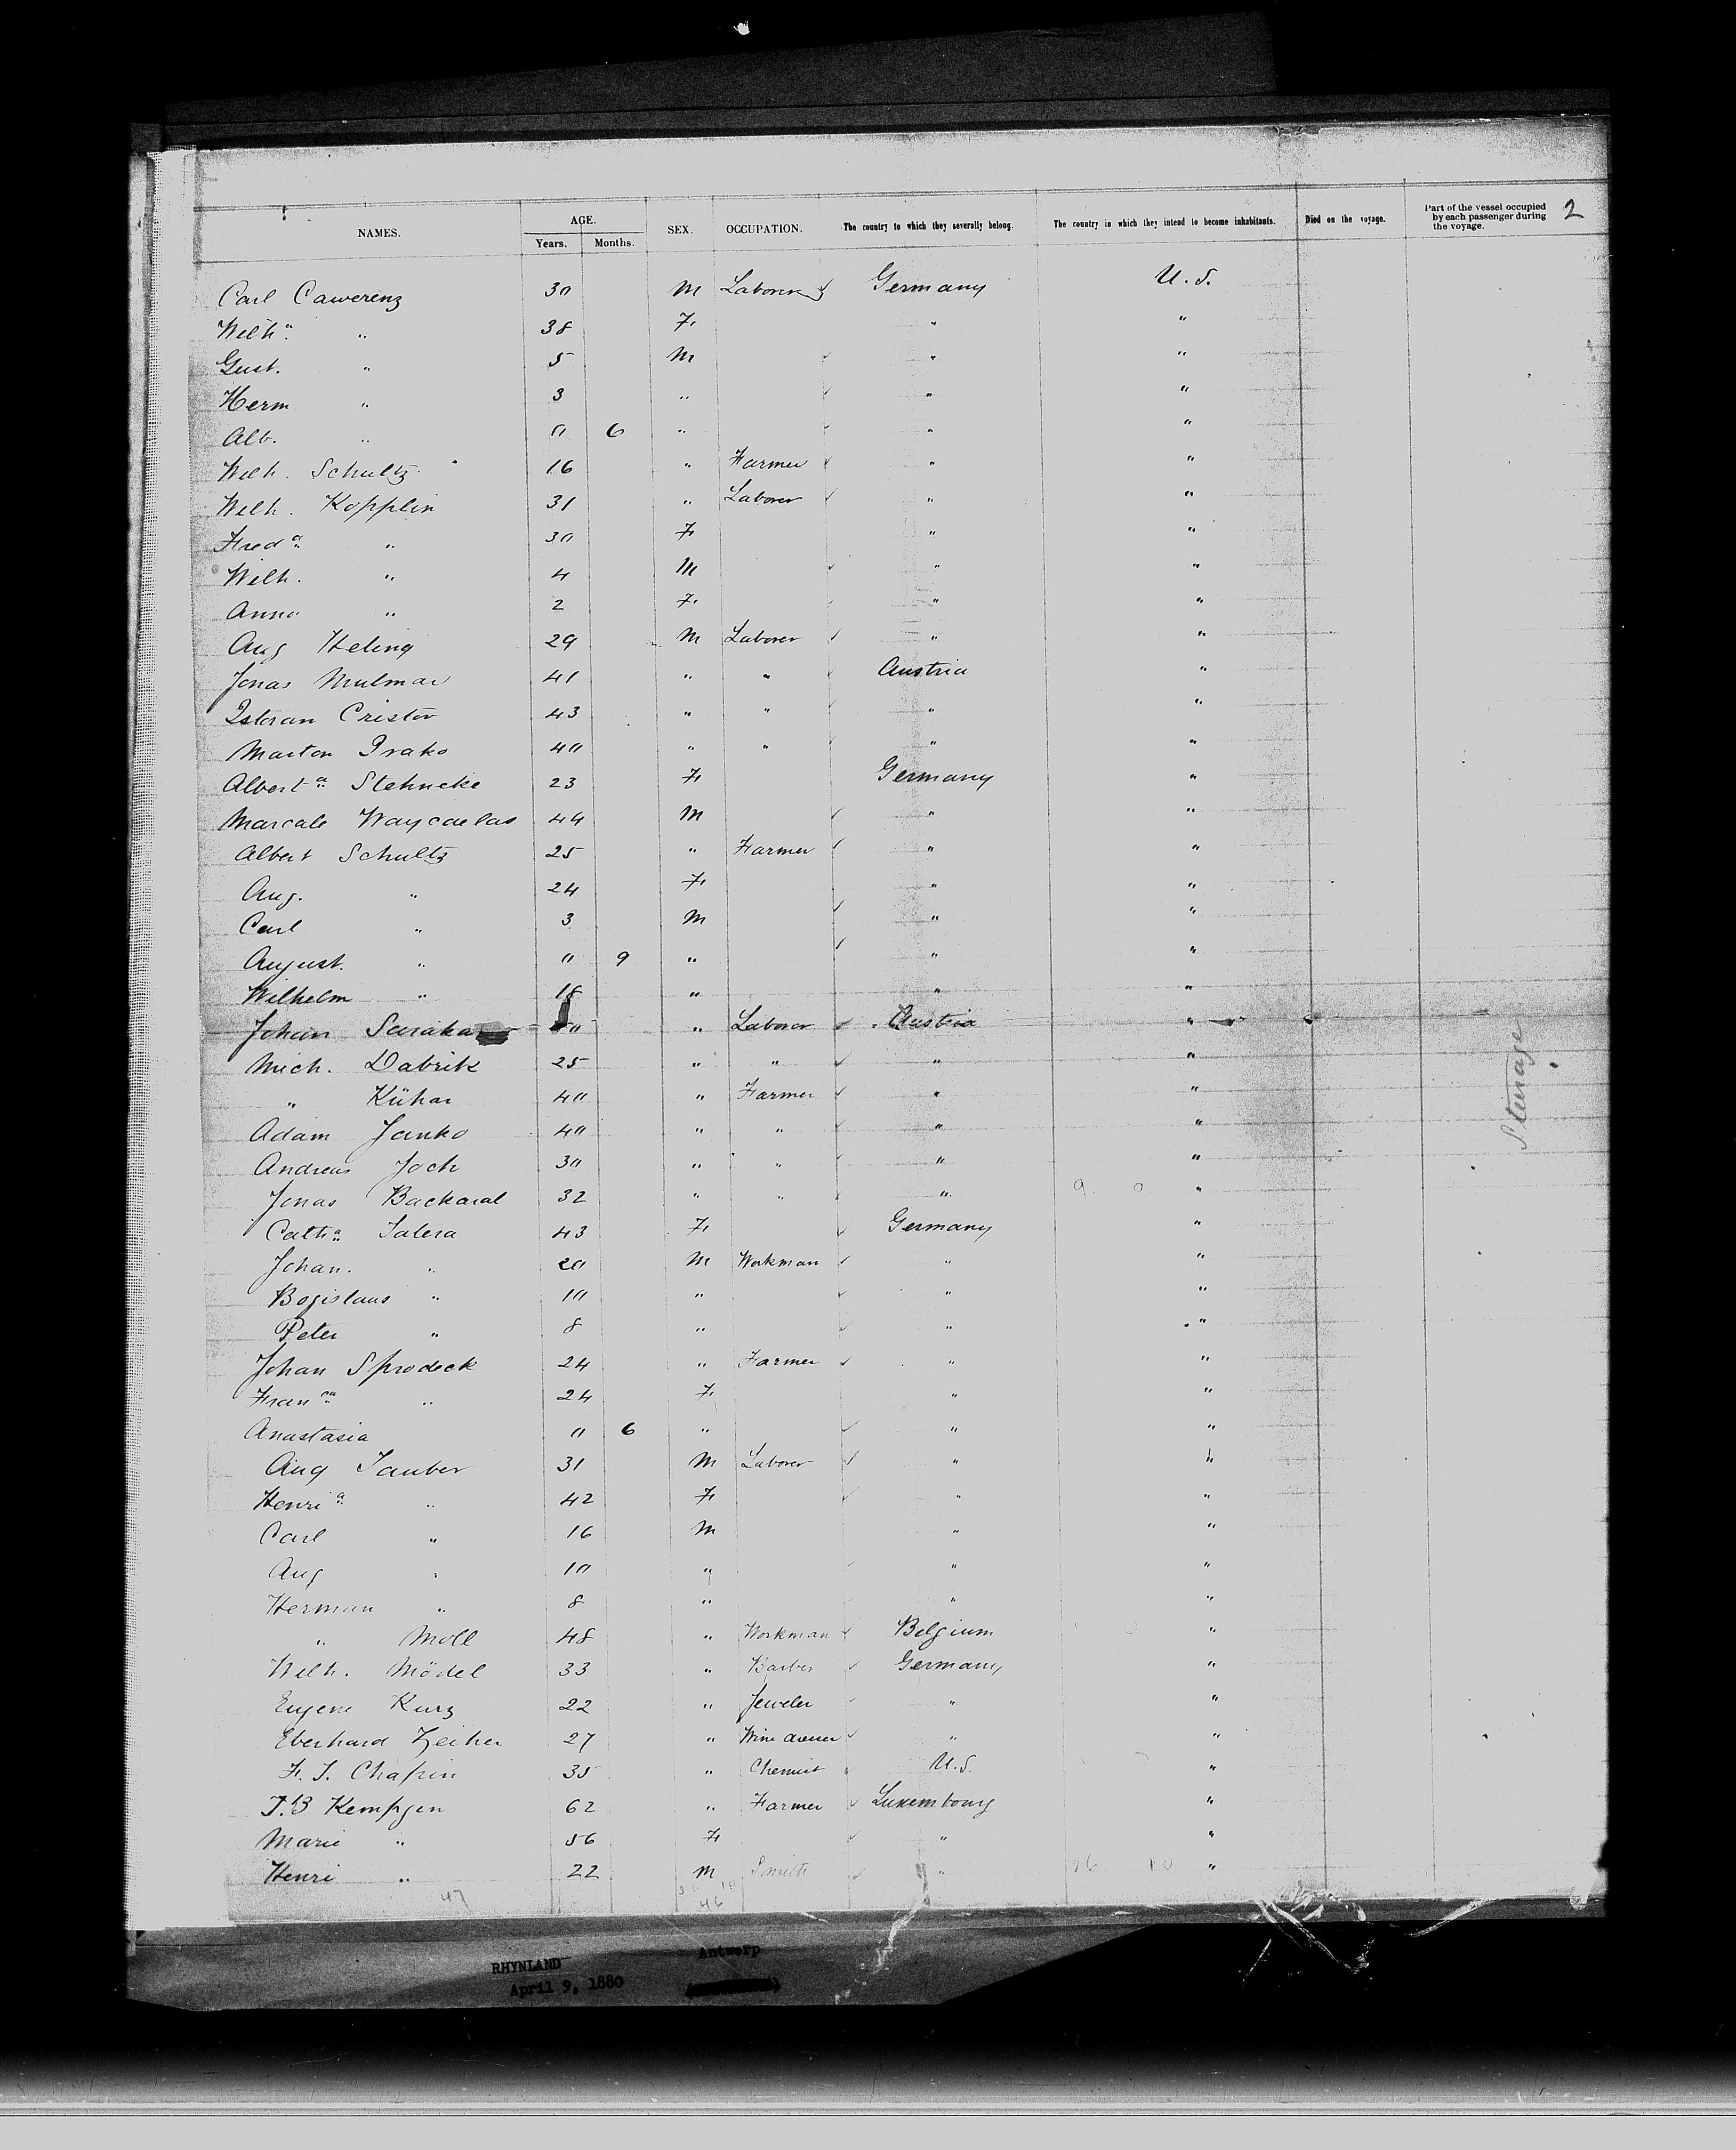 NAMES. AGE. Years. Months. SEX. OCCUPATION. The country to which they severally belong. The country in which they intend to become inhabitants. Died on the voyage. Part of the vessel occupied by each passenger during the voyage. 2
Carl Cawerenz 30 M Laborer Germany U.S.
Wilhª " 38 F " "
Gust. " 5 M " "
Herm " 3 " " "
Alb. " 0 6 " " "
Wilh. Schultz 16 " Farmer " "
Wilh. Kopplin 31 " Laborer " "
Fredª " 30 F " "
Wilh. " 4 M " "
Anna " 2 F " "
Aug Heling 29 M Laborer " "
Jonas Mulmar 41 " " Austria "
Istoran Cristov 43 " " " "
Marton Drako 40 " " " "
Albertª Stehncke 23 F Germany "
Marcale Waycaelas 44 M " "
Albert Schultz 25 " Farmer " "
Aug. " 24 F " "
Carl " 3 M " "
August. " 0 9 " " "
Wilhelm " 18 " " "
Johan " Laborer Austria "
Mich. Dabrik 25 " " " "
" Kühar 40 " Farmer " "
Adam Janko 40 " " " "
Andreas Joch 30 " " " "
Jonas Backaral 32 " " " 9 0 "
Cathª Salera 43 F Germany "
Johan. " 20 M Workman " "
Bogislaus " 10 " " "
Peter " 8 " " "
Johan Sprodeck 24 " Farmer " "
Franca " 24 F " "
Anastasia 0 6 " " "
Aug Tauber 31 M Laborer " "
Henriª " 42 F " "
Carl " 16 M " "
Aug " 10 " " "
Herman " 8 " " "
" Moll 48 " Workman Belgium "
Wilh. Mödel 33 " Barber Germany "
Eugene Kurz 22 " Jeweler " "
Eberhard Zeiher 27 " Wine " "
F. J. Chapin 35 " Chemist U.S. "
J.B Kempgen 62 " Farmer Luxembourg "
Marie " 56 F " "
Henri " 22 M Smith " 10 "
47 46
Steerage
RHYNLAND Antwerp
April 9, 1880